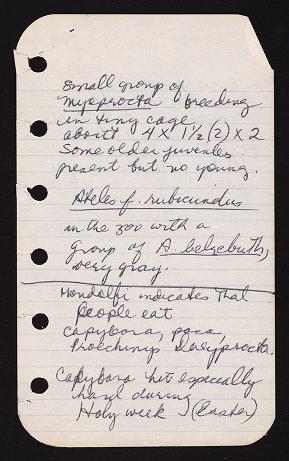 small group of
Myoprocta breeding
in tiny cage
about 4 x 1 1/2 (2) x 2
Some older juveniles
present but no young.
Ateles f. rubicundus
in the zoo with a
group of A. belzebuth,
very gray.
Mondolfi indicates that
people eat
capybara, paca,
Proechimys Dasyprocta.
Capybara hit especially
hard during
Holy week (Easter)